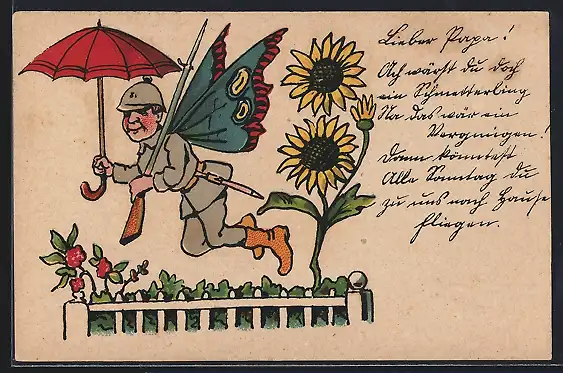 Lieber Papa!
Ach wärst du doch
ein Schmetterling
Na das wär ein
Vergnügen!
Dann könntest
Alle Sonntag du
zu uns nach Hause
fliegen.